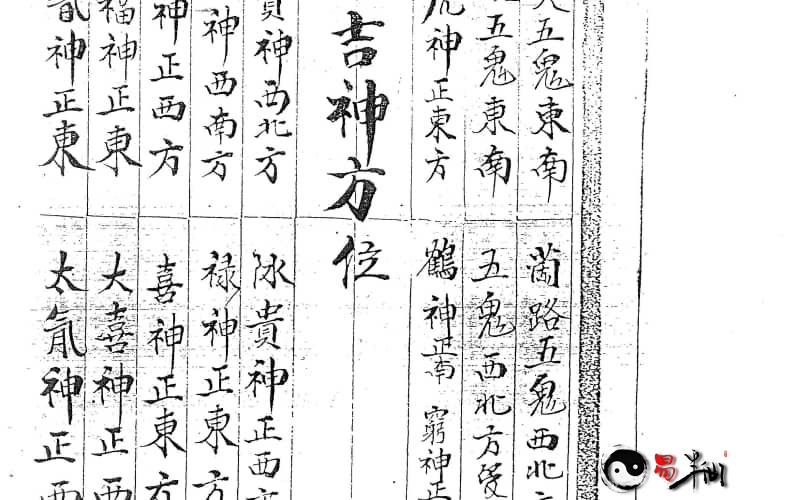 五鬼東南 茵路五鬼西北
五鬼東南 五鬼西北方
神正東方 鶴神正南 窮神正
吉神方位
貴神西北方 貴神正西方
神西南方 禄神正東方
神正西方 喜神正東方
福神正東 大喜神正西
神正東 太氣神正西
易